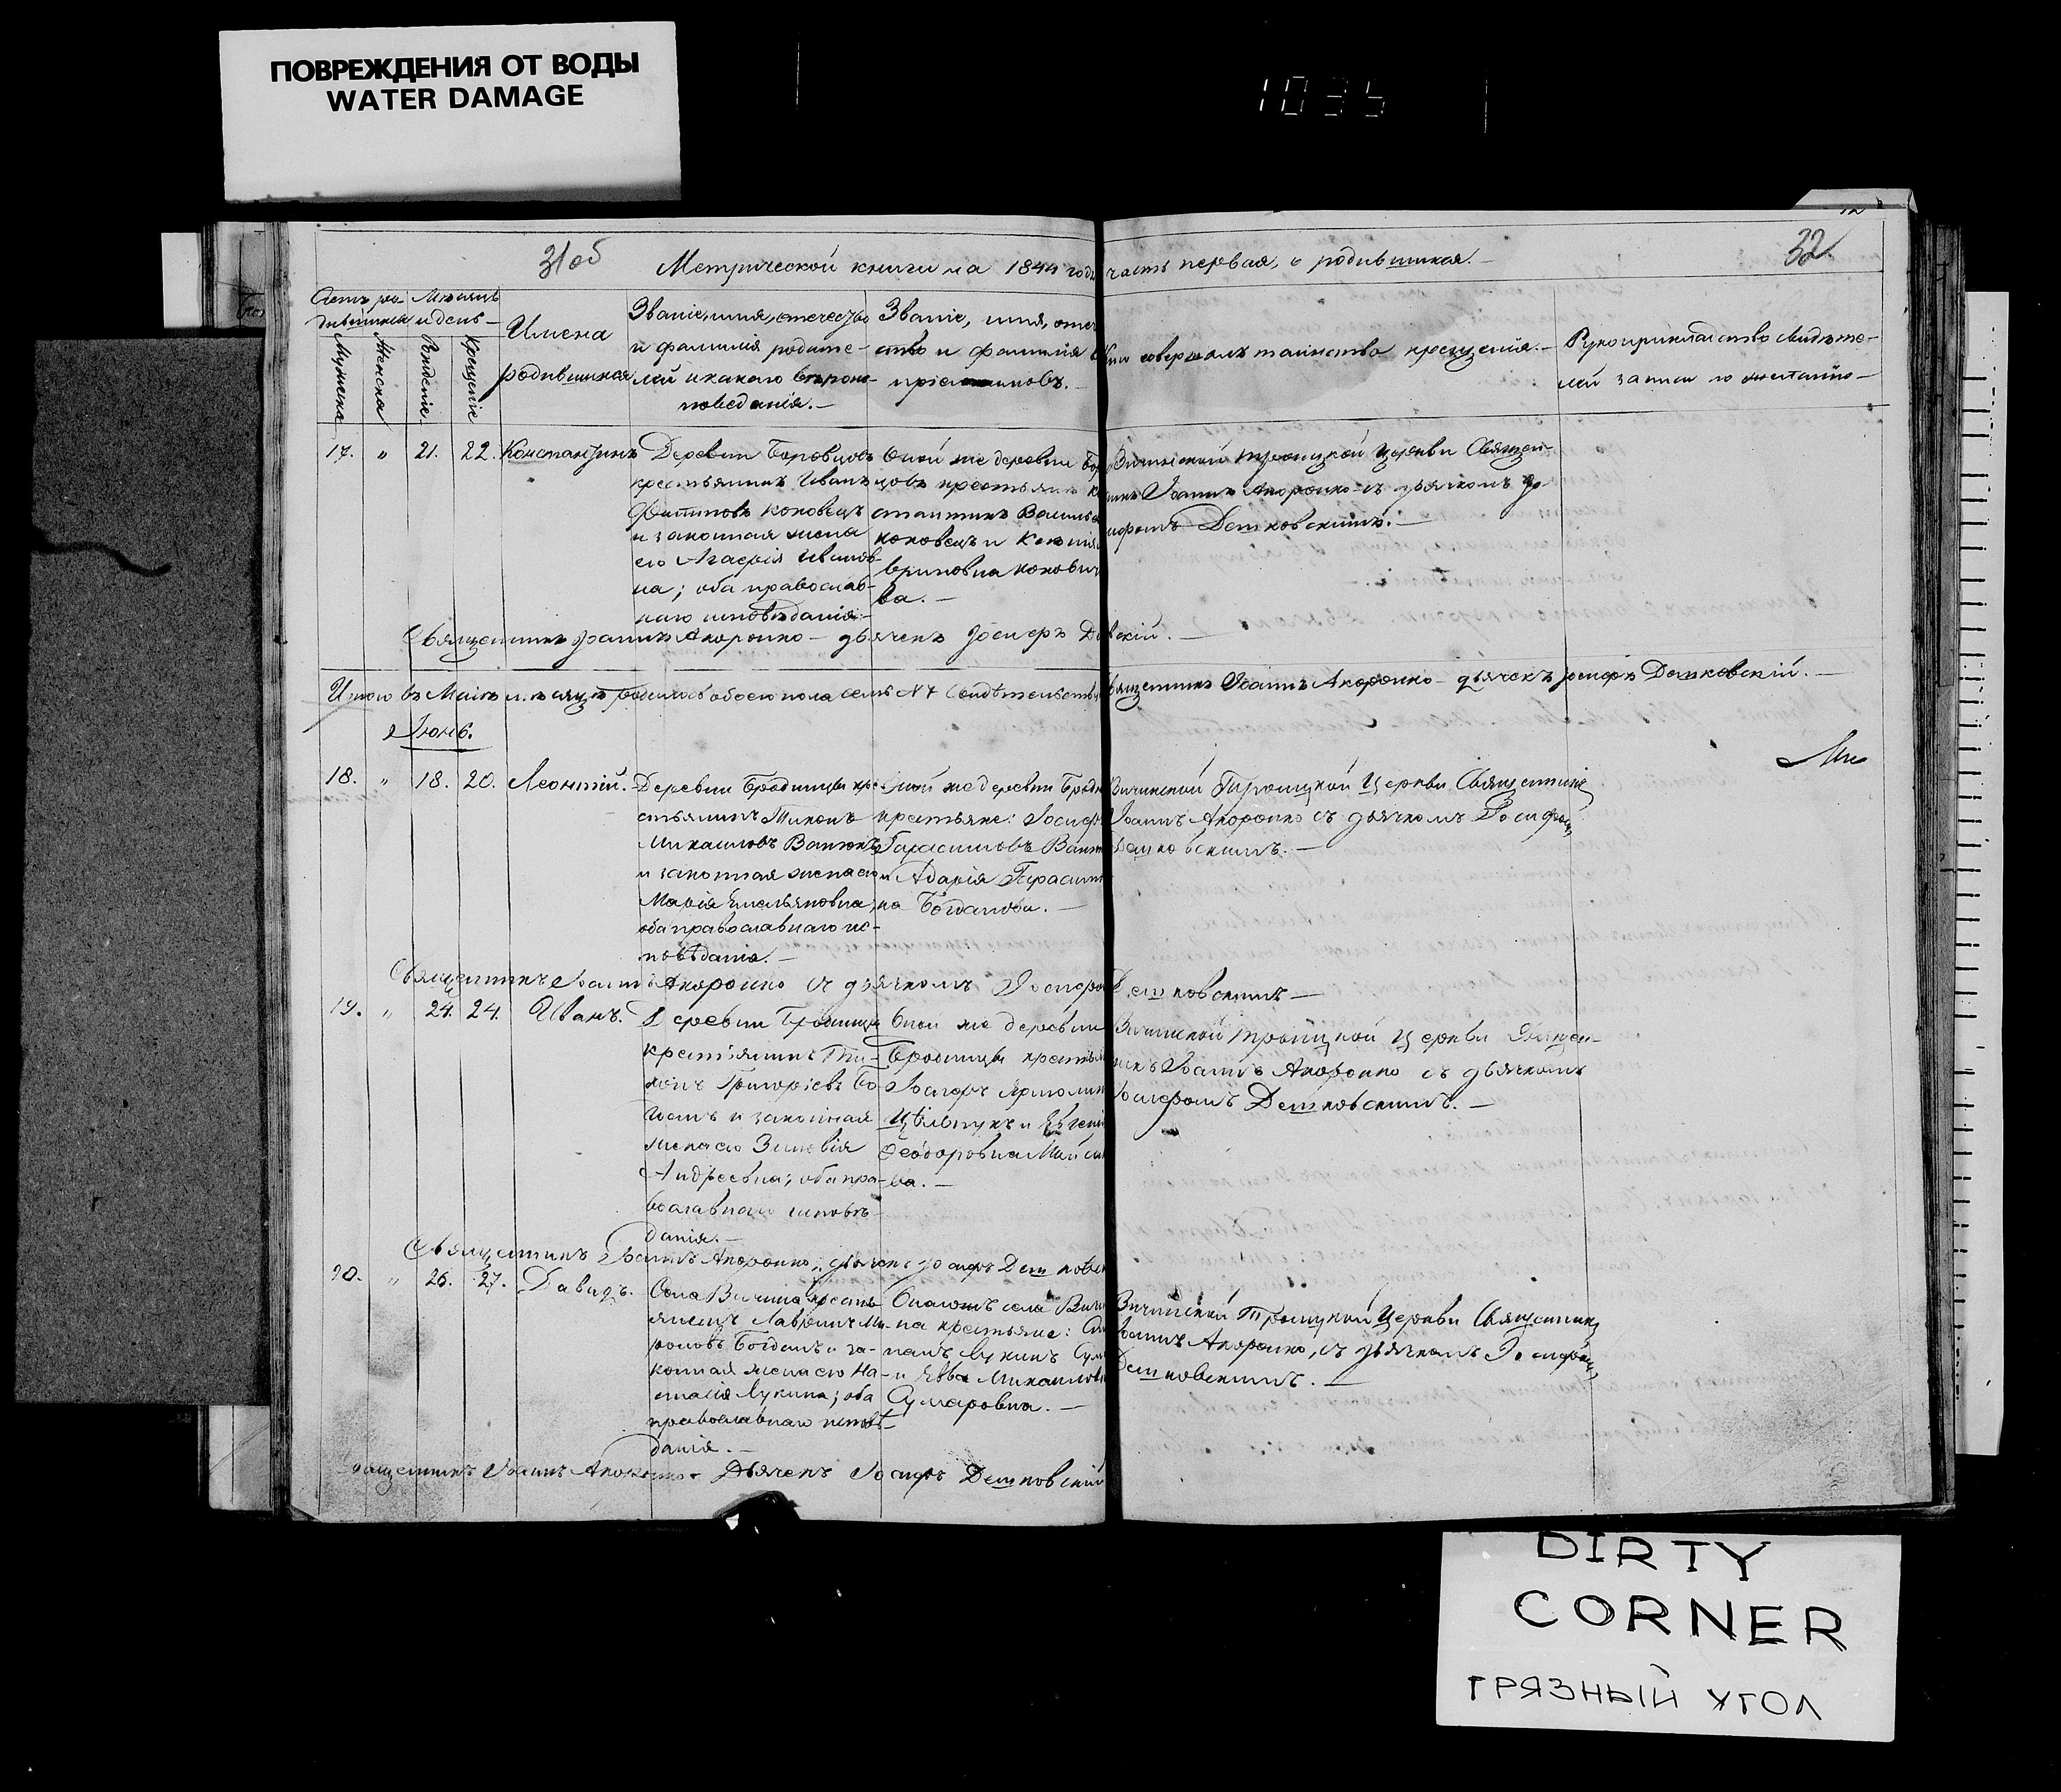 ПОВРЕЖДЕНИЯ ОТ ВОДЫ
WATER DAMAGE
1035
31об
32.
Метрической книги на 1844 годъ часть первая, о родившихся.—
Счетъ ро-
дившихся
Мужеска
Женска
Мѣсяцъ
и день—
Рожденіе
Крещеніе
Имена
родившихся
Званіе, имя, отечество
и фамилія родите-
лей и какого вѣроис-
поведанія.—
Званіе, имя, отче
ство и фамилія
пріемниковъ.—
Кто совершалъ таинство крещенія.—
Рукоприкладство свидѣте-
лей записи по желанію—
17. " 21. 22. Константинъ
Деревни Боровцовъ
крестьянинъ Иванъ
Филиповъ Коковецъ
и законная жена
его Агафія Иванов-
на; оба православ-
наго исповѣданія.
Оной же деревни Бо
цовъ крестьянинъ
Василье
Коковецъ и Ксенія
ва.—
Вичинской Троицкой Церкви Священ-
никъ Іоаннъ Акоронко съ дьячкомъ Іо-
сифомъ Детковскимъ.—
Священникъ Іоаннъ Акоронко — дьячекъ Іосифъ Де вскій.—
Итого въ Маѣ мѣсяцѣ родилось обоего пола семь № 7
Священникъ Іоаннъ Акоронко — дьячекъ Іосифъ Детковскій.—
Іюнь.
18. " 18. 20. Леонтій.
Деревни Бродницы кре-
стьянинъ Тихонъ
Михаиловъ Ванюкъ
и законная жена его
Марія Емельяновна;
оба православнаго ис-
повѣданія.—
Оной же деревни Бродн
крестьяне: Іосифъ
Гарасимовъ Ван
и Дарія Гарасим
на Богданова.—
Вичинской Троицкой Церкви Священникъ
Іоаннъ Акоронко съ дьячкомъ Іосифомъ
Детковскимъ.—
Священникъ Іоаннъ Акоронко съ дьячкомъ Іосифо Детковскимъ—
19. " 24. 24. Иванъ.
Деревни Бродницы
крестьянинъ Ти-
хонъ Григоріевъ Бо-
и законная
жена его Зиновія
Андреевна; оба пра-
вославнаго исповѣ-
данія.—
Оной же деревни
Бродницы крестья
Іосифъ Ярмолин
и Евгені
Ѳеодоровна
ва.—
Вичинской Троицкой Церкви Священ-
никъ Іоаннъ Акоронко съ дьячкомъ
Іосифомъ Детковскимъ.—
Священникъ Іоаннъ Акоронко; дьячекъ Іосифъ Детковск
20. " 26. 27. Давидъ.
Села Вичина кресть-
янинъ Лаврынъ Ми-
роновъ Богданъ и за-
конная жена его На-
сталія Лукина; оба
православнаго исповѣ-
данія.—
села Вичи
на крестьяне:
панъ Лукинъ
и Евва Михаилов
Сумаровна.—
Вичинской Троицкой Церкви Священникъ
Іоаннъ Акоронко, съ дьячкомъ Іосифомъ
Детковскимъ.—
Священникъ Іоаннъ Акоронко Дьячекъ Іосифъ Детковскій
DIRTY
CORNER
ГРЯЗНЫЙ УГОЛ